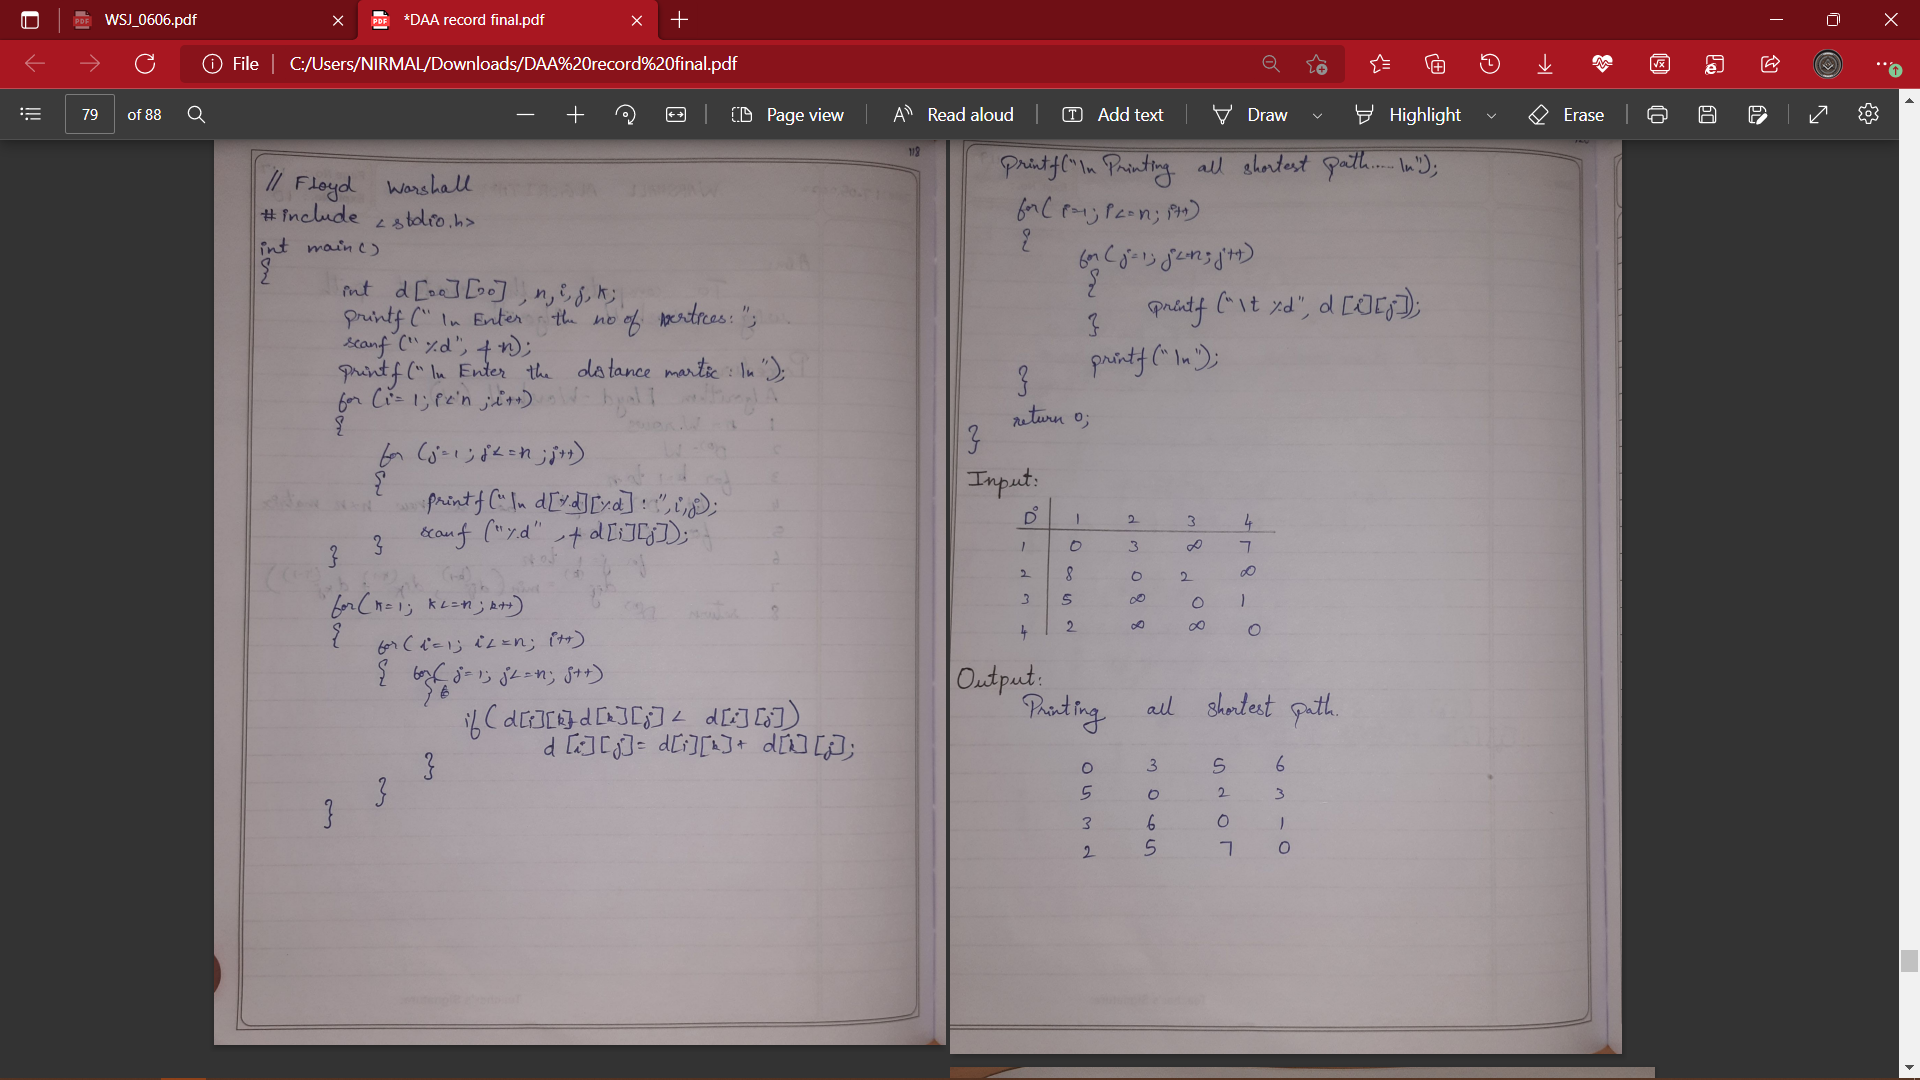 WSJ_0606.pdf
*DAA record final.pdf
File
C:/Users/NIRMAL/Downloads/DAA%20record%20final.pdf
79 of 88
Page view
Read aloud
Add text
Draw
Highlight
Erase
118
// Floyd Warshall
#include <stdio.h>
int main()
{
int d[20][20], n,i,j,k;
printf("\n Enter the no of vertices: ";
scanf("%d", &n);
printf("\n Enter the distance martix: \n");
for (i=1; i<n ;i++)
{
for (j=1; j<=n ;j++)
{
printf("\n d[%d][%d] : ",i,j);
scanf ("%d" , & d[i][j]);
}
}
for(k=1; k<=n; k++)
{
for(i=1; i<=n; i++)
{ for(j=1; j<=n; j++)
{
if(d[i][k]+d[k][j] < d[i][j])
d[i][j]= d[i][k]+ d[k][j];
}
}
}
printf("\n Printing all shortest path..... \n");
for( i=1; i<=n; i++)
{
for(j=1; j<=n; j++)
{
printf ("\t %d", d[i][j]);
}
printf("\n");
}
return 0;
}
Input:
D° 1 2 3 4
1 0 3 ∞ 7
2 8 0 2 ∞
3 5 ∞ 0 1
4 2 ∞ ∞ 0
Output:
Printing all shortest path.
0 3 5 6
5 0 2 3
3 6 0 1
2 5 7 0